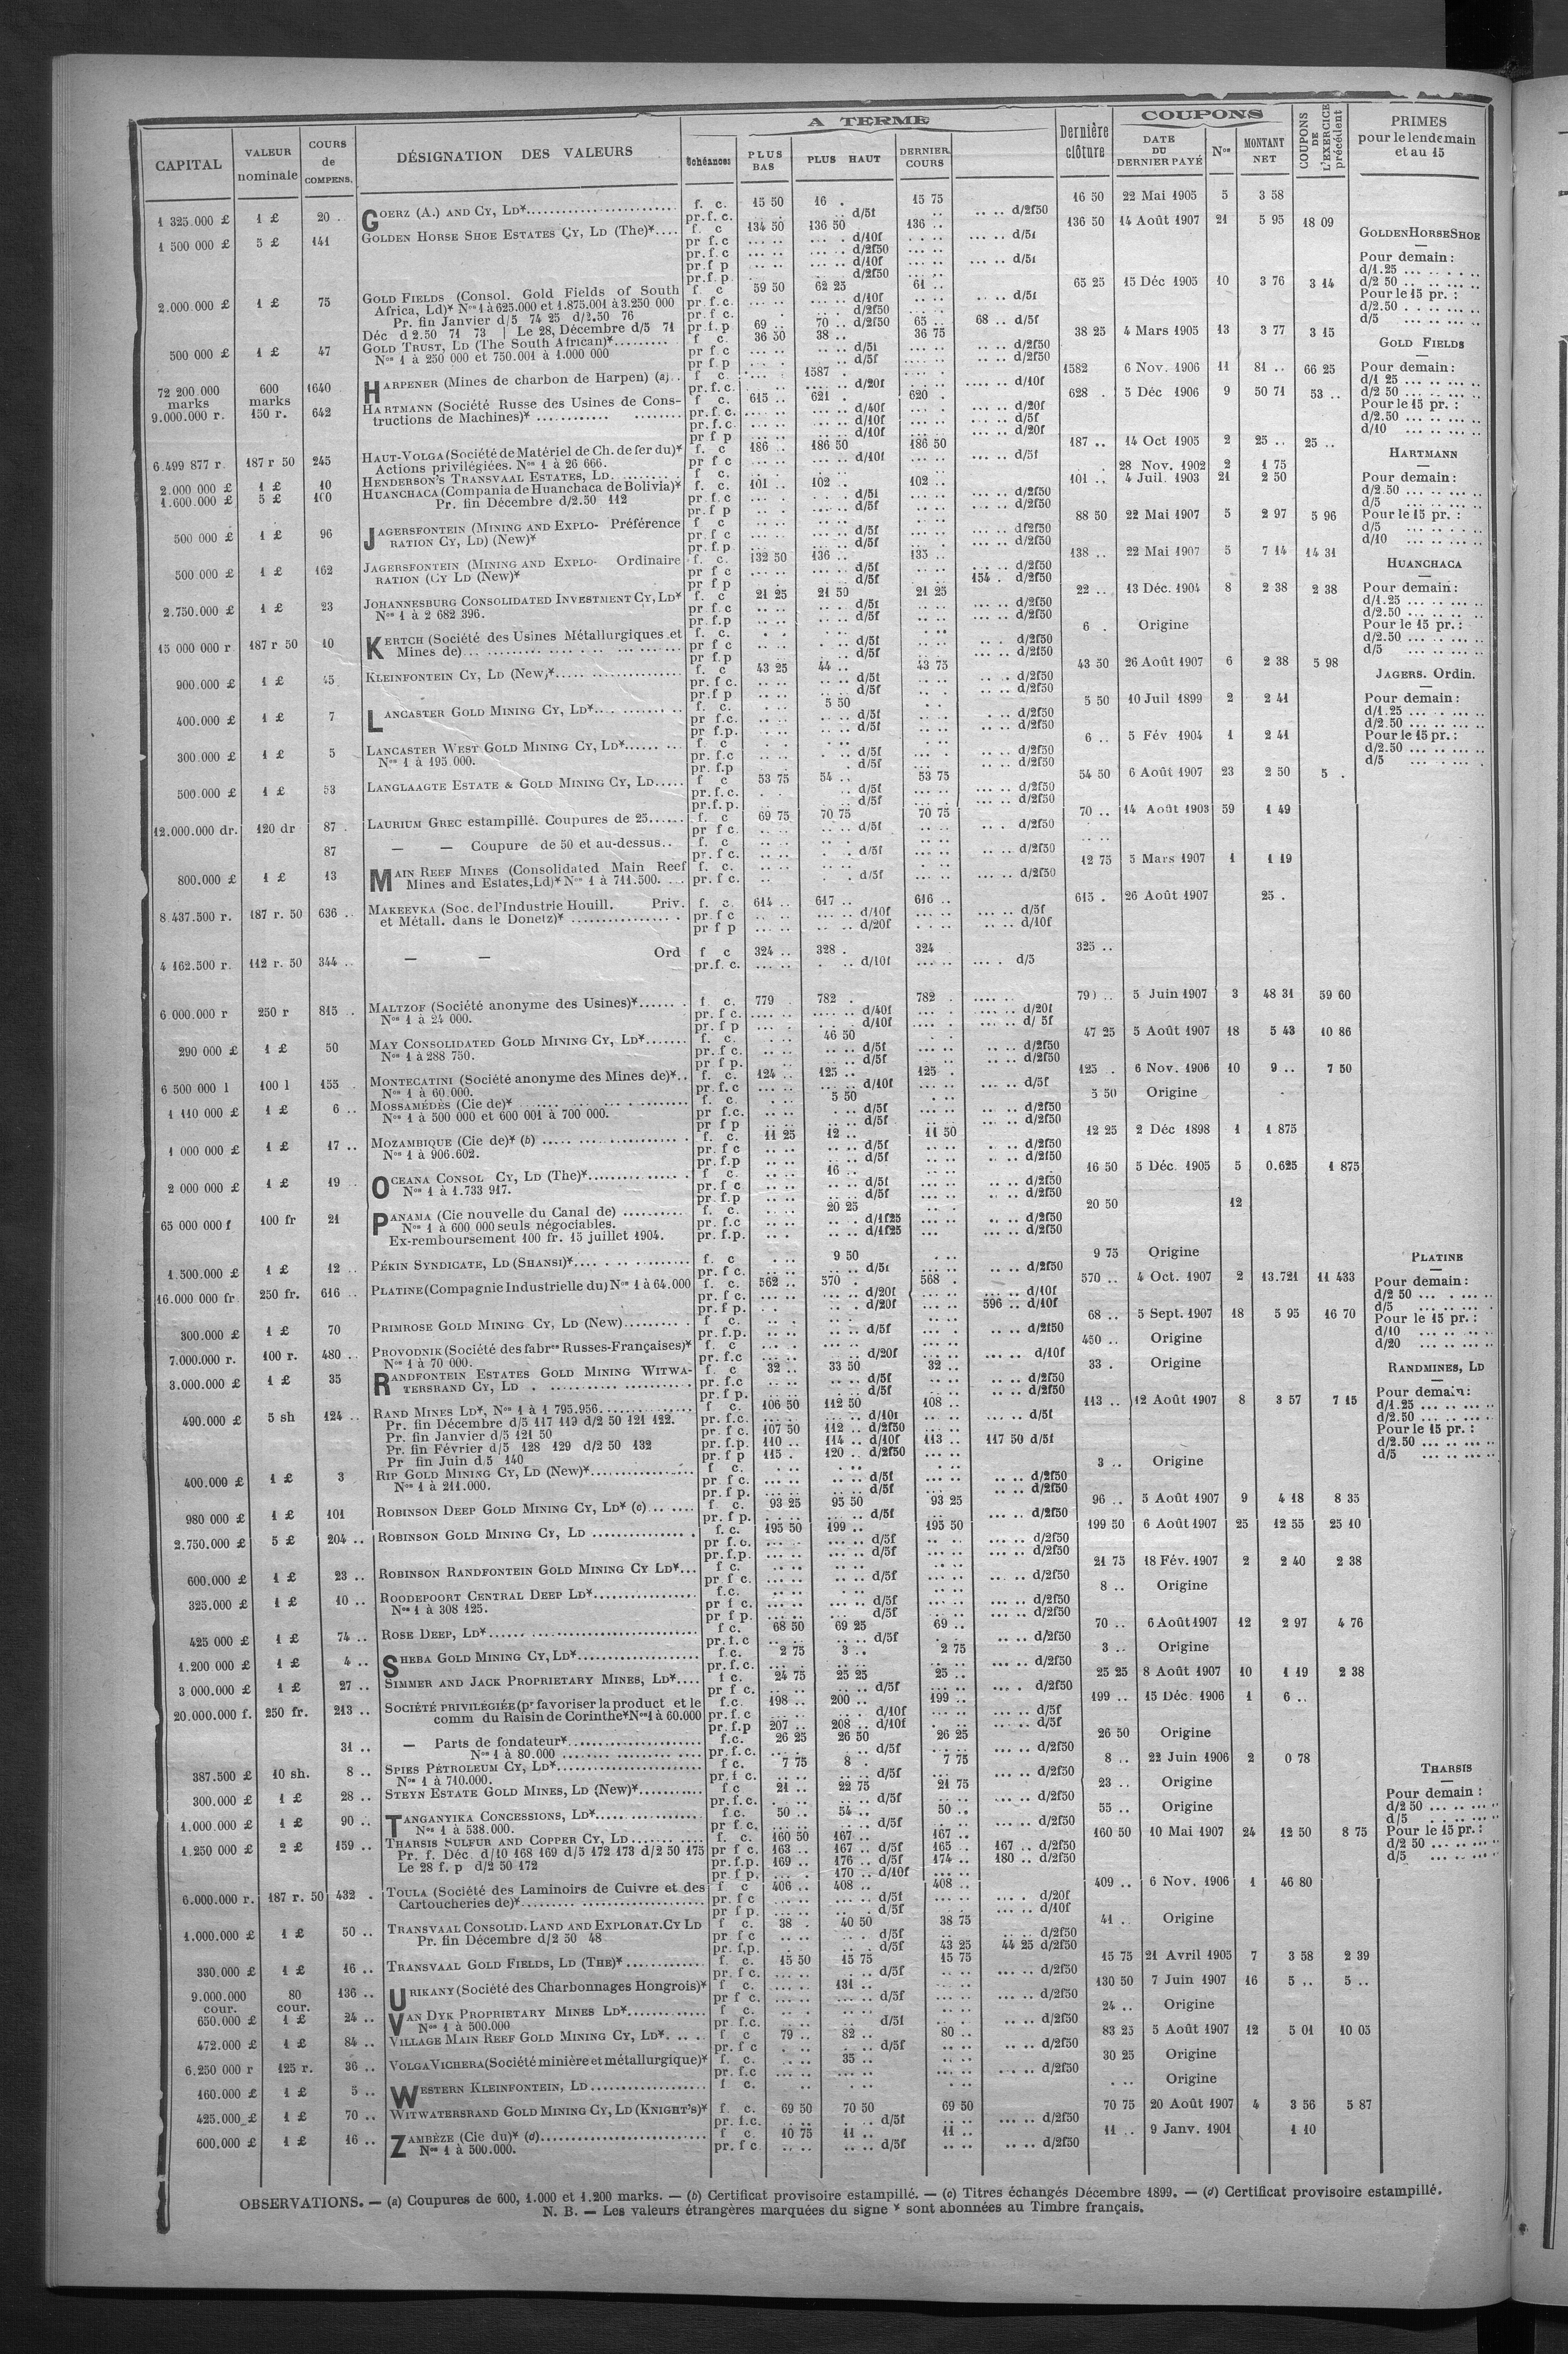 A TERME
COUPONS
CAPITAL
VALEUR nominale
COURS de COMPENS.
DÉSIGNATION DES VALEURS
Échéances
PLUS BAS
PLUS HAUT
DERNIER COURS
Dernière clôture
DATE DU DERNIER PAYÉ
Nos
MONTANT NET
COUPONS DE L'EXERCICE précédent
PRIMES pour le lendemain et au 15
1 325.000 £ 1 £ 20 . GOERZ (A.) AND CY, LD* f. c. 15 50 16 . 15 75 16 50 22 Mai 1905 5 3 58
pr.f.c. d/5f d/2f50
1 500 000 £ 5 £ 141 GOLDEN HORSE SHOE ESTATES CY, LD (The)* f. c 134 50 136 50 136 .. 136 50 14 Août 1907 21 5 95 18 09
pr f.c d/10f d/5f
pr.f.c d/2f50
pr.f p d/10f d/5f
pr.f.p. d/2f50
2.000.000 £ 1 £ 75 GOLD FIELDS (Consol. Gold Fields of South f. c 59 50 62 25 61 .. 65 25 15 Déc 1905 10 3 76 3 14
Africa, Ld)* Nos 1 à 625.000 et 1.875.001 à 3.250 000 pr.f.c. d/10f d/5f
Pr. fin Janvier d/5 74 25 d/2.50 76 pr.f c. d/2f50
Déc d 2.50 71 73 | Le 28, Décembre d/5 71 pr.f.p 69 .. 70 .. d/2f50 65 .. 68 .. d/5f
500 000 £ 1 £ 47 GOLD TRUST, LD (The South African)* f c. 36 50 38 .. 36 75 38 25 4 Mars 1905 13 3 77 3 15
Nos 1 à 250 000 et 750.001 à 1.000 000 pr f c d/5f d/2f50
pr f p d/5f d/2f50
72 200.000 marks 600 marks 1640 HARPENER (Mines de charbon de Harpen) (a) f c. 1587 . 1582 6 Nov. 1906 11 81 .. 66 25
pr.f.c. d/20f d/10f
9.000.000 r. 150 r. 642 HARTMANN (Société Russe des Usines de Cons- f c. 615 .. 621 . 620 . 628 . 5 Déc 1906 9 50 71 53 ..
tructions de Machines)* pr.f.c. d/40f d/20f
pr.f.c. d/10f d/5f
pr f p d/10f d/20f
6.499 877 r. 187 r 50 245 HAUT-VOLGA (Société de Matériel de Ch. de fer du)* f. c 186 .. 186 50 186 50 187 .. 14 Oct 1905 2 25 .. 25 ..
Actions privilégiées. Nos 1 à 26 666. pr f c d/10f d/5f
2.000 000 £ 1 £ 10 HENDERSON'S TRANSVAAL ESTATES, LD. f c. 28 Nov. 1902 2 1 75
1.600.000 £ 5 £ 100 HUANCHACA (Compania de Huanchaca de Bolivia)* f. c. 101 .. 102 .. 102 .. 101 .. 4 Juil. 1903 21 2 50
Pr. fin Décembre d/2.50 112 pr.f.c d/5f d/2f50
pr f p d/5f d/2f50
500 000 £ 1 £ 96 JAGERSFONTEIN (MINING AND EXPLO- Préférence f c 88 50 22 Mai 1907 5 2 97 5 96
RATION CY, LD) (New)* pr f c d/5f d/2f50
pr f.p d/5f d/2f50
500 000 £ 1 £ 162 JAGERSFONTEIN (MINING AND EXPLO- Ordinaire f. c. 132 50 136 .. 135 .. 138 .. 22 Mai 1907 5 7 14 14 31
RATION (CY LD (New)* pr f c d/5f d/2f50
pr f p d/5f 154 . d/2f50
2.750.000 £ 1 £ 23 JOHANNESBURG CONSOLIDATED INVESTMENT CY, LD* f. c 21 25 21 50 21 25 22 .. 13 Déc. 1904 8 2 38 2 38
Nos 1 à 2 682 396. pr f.c d/5f d/2f50
pr.f.p d/5f d/2f50
15 000 000 r 187 r 50 10 KERTCH (Société des Usines Métallurgiques et f. c. 6 . Origine
Mines de) pr f c d/5f d/2f50
pr f.p d/5f d/2f50
900.000 £ 1 £ 45 KLEINFONTEIN CY, LD (New)* f. c 43 25 44 .. 43 75 43 50 26 Août 1907 6 2 38 5 98
pr f c. d/5f d/2f50
pr.f p d/5f d/2f50
400.000 £ 1 £ 7 LANCASTER GOLD MINING CY, LD* f. c. 5 50 5 50 10 Juil 1899 2 2 41
pr f.c. d/5f d/2f50
pr f.p. d/5f d/2f50
300.000 £ 1 £ 5 LANCASTER WEST GOLD MINING CY, LD* f. c 6 .. 5 Fév 1904 1 2 41
Nos 1 à 195 000. pr f.c d/5f d/2f50
pr. f.p d/5f d/2f50
500.000 £ 1 £ 53 LANGLAAGTE ESTATE & GOLD MINING CY, LD f c 53 75 54 .. 53 75 54 50 6 Août 1907 23 2 50 5 .
pr.f.c. d/5f d/2f50
pr.f.p. d/5f d/2f50
12.000.000 dr. 120 dr 87 . LAURIUM GREC estampillé. Coupures de 25 f. c 69 75 70 75 70 75 70 .. 14 Août 1903 59 1 49
pr f c. d/5f d/2f50
87 — — Coupure de 50 et au-dessus f. c
pr.f c. d/5f d/2f50
800.000 £ 1 £ 13 MAIN REEF MINES (Consolidated Main Reef f. c. 12 75 5 Mars 1907 1 1 19
Mines and Estates, Ld)* Nos 1 à 711.500. pr. f c. d/5f d/2f50
8 437.500 r. 187 r. 50 636 .. MAKEEVKA (Soc. de l'Industrie Houill. Priv. f. c. 614 .. 617 .. 616 .. 615 . 26 Août 1907 25 .
et Métall. dans le Donetz)* pr f c d/10f d/5f
pr f p d/20f d/10f
4 162.500 r. 112 r. 50 344 .. — — Ord f c 324 .. 328 . 324 325 ..
pr.f. c. d/10f d/5
6 000.000 r 250 r 815 .. MALTZOF (Société anonyme des Usines)* f. c. 779 . 782 . 782 . 5 Juin 1907 3 48 31 59 60
Nos 1 à 24 000. pr. f c. d/40f d/20f
pr. f p d/10f d/ 5f
290 000 £ 1 £ 50 MAY CONSOLIDATED GOLD MINING CY, LD* f. c. 46 50 47 25 5 Août 1907 18 5 43 10 86
Nos 1 à 288 750. pr. f c. d/5f d/2f50
pr f p. d/5f d/2f50
6 500 000 l 100 l 155 MONTECATINI (Société anonyme des Mines de)* f. c. 124 .. 125 .. 125 . 125 .. 6 Nov. 1906 10 9 .. 7 50
Nos 1 à 60.000. pr.f.c d/10f d/5f
1 110 000 £ 1 £ 6 .. MOSSAMÉDÈS (Cie de)* f. c. 5 50 5 50 Origine
Nos 1 à 500 000 et 600 001 à 700 000. pr f.c. d/5f d/2f50
pr f p d/5f d/2f50
1 000 000 £ 1 £ 17 .. MOZAMBIQUE (Cie de)* (b) f. c. 11 25 12 .. 11 50 12 25 2 Déc 1898 1 1 875
Nos 1 à 906.602. pr. f c d/5f d/2f50
pr.f.p d/5f d/2f50
2 000 000 £ 1 £ 19 OCEANA CONSOL CY, LD (The)* f c. 16 .. 16 50 5 Déc. 1905 5 0.625 1 875
Nos 1 à 1.733 917. pr.f c d/5f d/2f50
pr. f.p d/5f d/2f50
65 000 000 f 100 fr 21 PANAMA (Cie nouvelle du Canal de) f. c. 20 25 20 50 12
Nos 1 à 600.000 seuls négociables. pr. f.c d/1f25 d/2f50
Ex-remboursement 100 fr. 15 juillet 1904. pr. f.p. d/1f25 d/2f50
1.500.000 £ 1 £ 12 .. PÉKIN SYNDICATE, LD (SHANSI)* f. c 9 50 9 75 Origine
pr. f c. d/5f d/2f50
16.000 000 fr 250 fr. 616 .. PLATINE (Compagnie Industrielle du) Nos 1 à 64.000 f. c. 562 .. 570 . 568 . 570 .. 4 Oct. 1907 2 13.721 11 433
pr. f c. d/20f d/10f
pr. f p. d/20f 596 .. d/10f
300.000 £ 1 £ 70 PRIMROSE GOLD MINING CY, LD (New) f c. 68 .. 5 Sept. 1907 18 5 95 16 70
pr. f.p. d/5f d/2f50
7.000.000 r. 100 r. 480 .. PROVODNIK (Société des fabres Russes-Françaises)* f. c 450 .. Origine
Nos 1 à 70 000. pr. f.c d/20f d/10f
3.000.000 £ 1 £ 35 RANDFONTEIN ESTATES GOLD MINING WITWA- f. c 32 .. 33 50 32 .. 33 . Origine
TERSRAND CY, LD pr. f.c d/5f d/2f50
pr.f p. d/5f d/2f50
490.000 £ 5 sh 124 .. RAND MINES LD*, Nos 1 à 1 795.956. f c. 106 50 112 50 108 .. 113 .. 12 Août 1907 8 3 57 7 15
Pr. fin Décembre d/5 117 119 d/2 50 121 122. pr. f.c. d/10f d/5f
Pr. fin Janvier d/5 121 50 pr. f c. 107 50 112 .. d/2f50
Pr. fin Février d/5 128 129 d/2 50 132 pr. f.p. 110 .. 114 .. d/10f 113 .. 117 50 d/5f
Pr fin Juin d/5 140 pr. f p 115 . 120 .. d/2f50
400.000 £ 1 £ 3 RIP GOLD MINING CY, LD (New)* f c. 3 .. Origine
Nos 1 à 211.000. pr f c. d/5f d/2f50
pr. f p. d/5f d/2f50
980 000 £ 1 £ 101 ROBINSON DEEP GOLD MINING CY, LD* (c) f c. 93 25 95 50 93 25 96 .. 5 Août 1907 9 4 18 8 35
pr. f p. d/5f d/2f50
2.750.000 £ 5 £ 204 .. ROBINSON GOLD MINING CY, LD f. c. 195 50 199 .. 195 50 199 50 6 Août 1907 25 12 55 25 10
pr f.c. d/5f d/2f50
pr.f.p. d/5f d/2f50
600.000 £ 1 £ 23 .. ROBINSON RANDFONTEIN GOLD MINING CY LD* f c. 21 75 18 Fév. 1907 2 2 40 2 38
pr f c. d/5f d/2f50
325.000 £ 1 £ 10 .. ROODEPOORT CENTRAL DEEP LD* f.c. 8 .. Origine
Nos 1 à 308 125. pr f c. d/5f d/2f50
pr f p. d/5f d/2f50
425 000 £ 1 £ 74 .. ROSE DEEP, LD* f c. 68 50 69 25 69 .. 70 .. 6 Août 1907 12 2 97 4 76
pr. f.c d/5f d/2f50
1.200 000 £ 1 £ 4 .. SHEBA GOLD MINING CY, LD* f.c. 2 75 3 .. 2 75 3 .. Origine
pr. f.c. d/2f50
3 000.000 £ 1 £ 27 .. SIMMER AND JACK PROPRIETARY MINES, LD* f c. 24 75 25 25 25 .. 25 25 8 Août 1907 10 1 19 2 38
pr f c. d/5f d/2f50
20.000.000 f. 250 fr. 213 .. SOCIÉTÉ PRIVILÉGIÉE (pr favoriser la product et le f.c. 198 .. 200 .. 199 .. 199 .. 15 Déc. 1906 1 6 ..
comm du Raisin de Corinthe* Nos 1 à 60.000 pr. f. c d/10f d/5f
pr. f.p 207 .. 208 .. d/10f d/5f
31 .. — Parts de fondateur* f.c. 26 25 26 50 26 25 26 50 Origine
Nos 1 à 80.000 pr. f. c. d/5f d/2f50
387.500 £ 10 sh. 8 .. SPIES PÉTROLEUM CY, LD* f c. 7 75 8 . 7 75 8 .. 22 Juin 1906 2 0 78
Nos 1 à 710.000. pr. f c. d/5f d/2f50
300.000 £ 1 £ 28 .. STEYN ESTATE GOLD MINES, LD (New)* f c 21 .. 22 75 21 75 23 .. Origine
pr. f.c. d/5f d/2f50
1.000.000 £ 1 £ 90 .. TANGANYIKA CONCESSIONS, LD* f c. 50 .. 54 .. 50 .. 55 .. Origine
Nos 1 à 538.000. pr f c. d/5f d/2f50
1.250 000 £ 2 £ 159 .. THARSIS SULFUR AND COPPER CY, LD f. c. 160 50 167 .. 167 .. 160 50 10 Mai 1907 24 12 50 8 75
Pr. f. Déc. d/10 168 169 d/5 172 173 d/2 50 175 pr f c. 163 .. 167 .. d/5f 165 . 167 .. d/2f50
Le 28 f. p d/2 50 172 pr.f.p. 169 .. 176 .. d/5f 174 .. 180 .. d/2f50
pr f p. 170 .. d/10f
6.000.000 r. 187 r. 50 432 . TOULA (Société des Laminoirs de Cuivre et des f c 406 .. 408 .. 408 .. 409 .. 6 Nov. 1906 1 46 80
Cartoucheries de)* pr. f c d/5f d/20f
pr f p. d/5f d/10f
1.000.000 £ 1 £ 50 .. TRANSVAAL CONSOLID. LAND AND EXPLORAT. CY LD f c. 38 . 40 50 38 75 41 . Origine
Pr. fin Décembre d/2 50 48 pr f c d/5f d/2f50
pr. f.p. d/5f 43 25 44 25 d/2f50
330.000 £ 1 £ 16 .. TRANSVAAL GOLD FIELDS, LD (THE)* f. c. 15 50 15 75 15 75 15 75 21 Avril 1905 7 3 58 2 39
pr f c. d/5f d/2f50
9.000.000 cour. 80 cour. 136 .. URIKANY (Société des Charbonnages Hongrois)* f c. 131 .. 130 50 7 Juin 1907 16 5 .. 5 ..
pr f c. d/5f d/2f50
650.000 £ 1 £ 24 .. VAN DYK PROPRIETARY MINES LD* f c. 24 .. Origine
Nos 1 à 500.000 pr. f.c. d/5f d/2f50
472.000 £ 1 £ 84 .. VILLAGE MAIN REEF GOLD MINING CY, LD* f c 79 .. 82 .. 80 .. 83 25 5 Août 1907 12 5 01 10 05
pr. f c d/5f d/2f50
6.250 000 r 125 r. 36 .. VOLGA VICHERA (Société minière et métallurgique)* f. c. 35 .. 30 25 Origine
pr. f.c d/2f50
160.000 £ 1 £ 5 .. WESTERN KLEINFONTEIN, LD f c. Origine
425.000 £ 1 £ 70 .. WITWATERSRAND GOLD MINING CY, LD (KNIGHT'S)* f. c. 69 50 70 50 69 50 70 75 20 Août 1907 4 3 56 5 87
pr. f.c. d/5f d/2f50
600.000 £ 1 £ 16 .. ZAMBÈZE (Cie du)* (d) f c. 10 75 11 .. 11 .. 11 .. 9 Janv. 1901 1 10
Nos 1 à 500.000. pr. f c d/5f d/2f50
GOLDEN HORSE SHOE
Pour demain:
d/1.25
d/2 50
Pour le 15 pr. :
d/2.50
d/5
GOLD FIELDS
Pour demain:
d/1 25
d/2 50
Pour le 15 pr. :
d/2.50
d/10
HARTMANN
Pour demain:
d/2.50
d/5
Pour le 15 pr. :
d/5
d/10
HUANCHACA
Pour demain:
d/1.25
d/2.50
Pour le 15 pr. :
d/2.50
d/5
JAGERS. Ordin.
Pour demain:
d/1.25
d/2.50
Pour le 15 pr. :
d/2.50
d/5
PLATINE
Pour demain:
d/2 50
d/5
Pour le 15 pr. :
d/10
d/20
RANDMINES, LD
Pour demain:
d/1.25
d/2.50
Pour le 15 pr. :
d/2.50
d/5
THARSIS
Pour demain :
d/2 50
d/5
Pour le 15 pr. :
d/2 50
d/5
OBSERVATIONS. — (a) Coupures de 600, 1.000 et 1.200 marks. — (b) Certificat provisoire estampillé. — (c) Titres échangés Décembre 1899. — (d) Certificat provisoire estampillé.
N. B. — Les valeurs étrangères marquées du signe * sont abonnées au Timbre français.